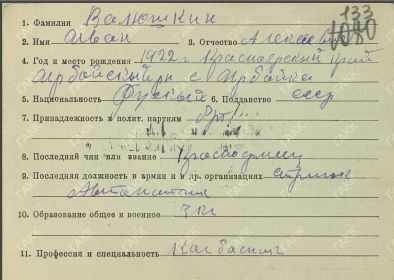 133
1. Фамилия Валюшкин 1080
2. Имя Иван 3. Отчество Алексеев
4. Год и место рождения 1922 г Красноярский край
Ирбейский рн с Ирбейка
5. Национальность Русский 6. Подданство ссср
7. Принадлежность к полит. партиям
8. Последний чин или звание Красноармеец
9. Последняя должность в армии и в др. организациях стрелок
10. Образование общее и военное 3 кл
11. Профессия и специальность